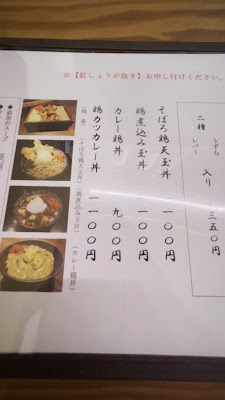 ※【紅しょうが抜き】お申し付けください。
二種 入り 一三五〇円
うずら
レバー
そぼろ鶏天玉丼 一一〇〇円
鶏煮込み玉丼 一一〇〇円
カレー鶏丼 九〇〇円
鶏カツカレー丼 一一〇〇円
(そぼろ鶏天玉丼)
(鶏煮込み玉丼)
(カレー鶏丼)
◆追加のスープ